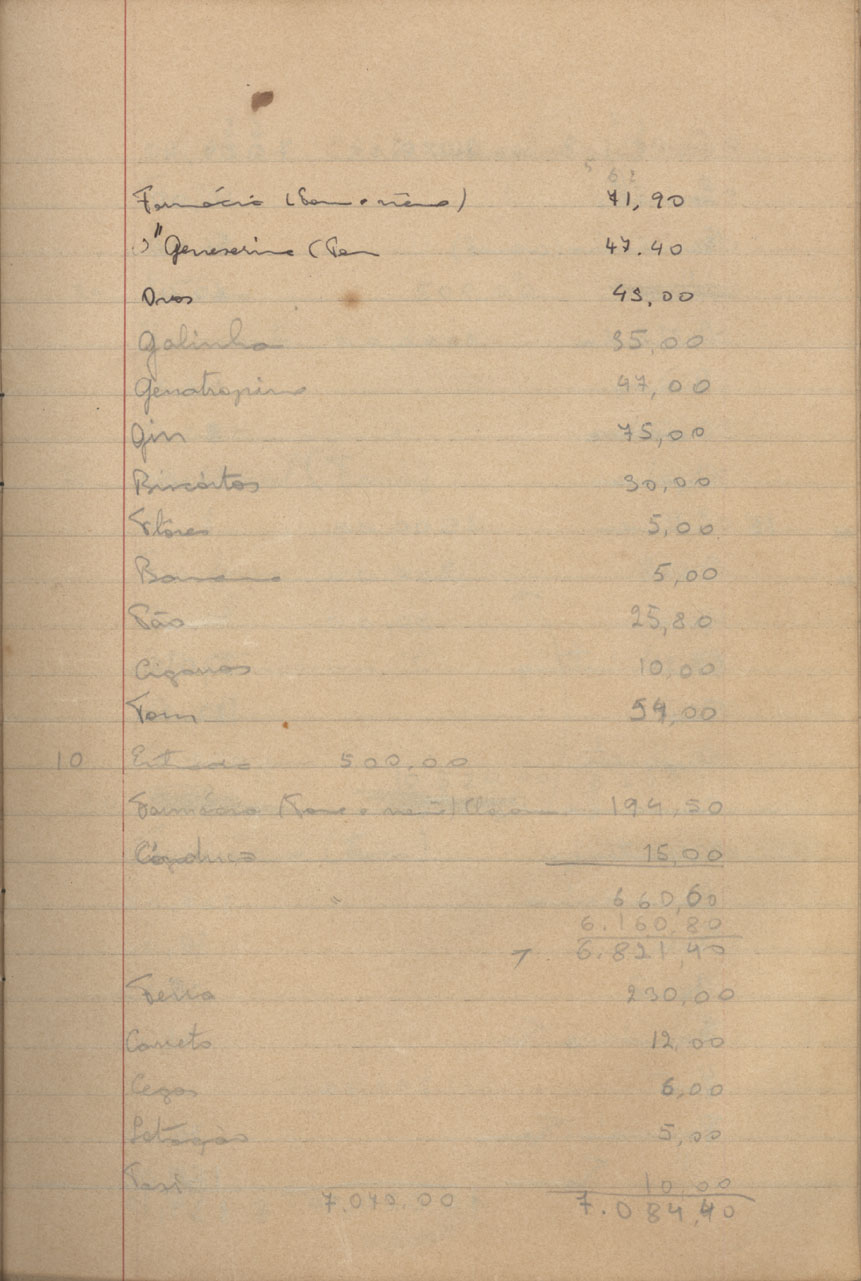 5 6 2
Farmácia ( 71,90
" Geneserina ( 47.40
Ovos 43,00
Galinha 35,00
Genatropina 47,00
Gin 75,00
Biscôitos 30,00
Flôres 5,00
Banana 5,00
Pão 25,80
Cigarros 10,00
54,00
10 Entrada 500,00
Farmácia ( 194,50
15,00
660,60
6.160,80
6.821,40
Feira 230,00
Carreto 12,00
Cegos 6,00
Lotação 5,00
10,00
7.040.00 7.084,40